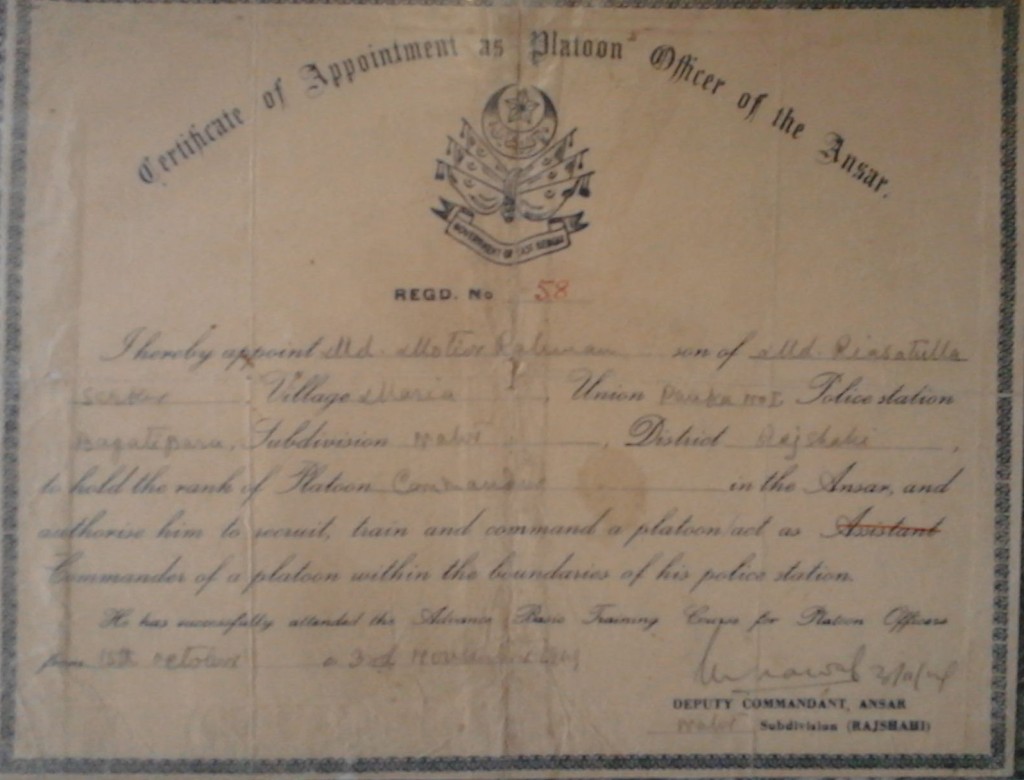 Certificate of Appointment as Platoon Officer of the Ansar.
GOVERNMENT OF EAST BENGAL
REGD. No 58
I hereby appoint Md. Motiur Rahman son of Md. Riasatulla
Village Maria, Union Panka No I Police station
Subdivision Natore, District Rajshahi,
to hold the rank of Platoon Commander in the Ansar, and
authorise him to recruit, train and command a platoon/act as Assistant
Commander of a platoon within the boundaries of his police station.
He has successfully attended the Advance Basic Training Course for Platoon Officers
from 15th October 3rd November
DEPUTY COMMANDANT, ANSAR
Natore Subdivision (RAJSHAHI)